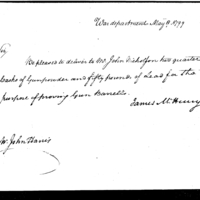 War department May 8. 1799
Sir
Be pleased to deliver to Mr. John Nicholson two quarter
Casks of Gunpowder and fifty pounds of Lead for the
purpose of proving Gun Barrels.
James McHenry
Mr. John Harris